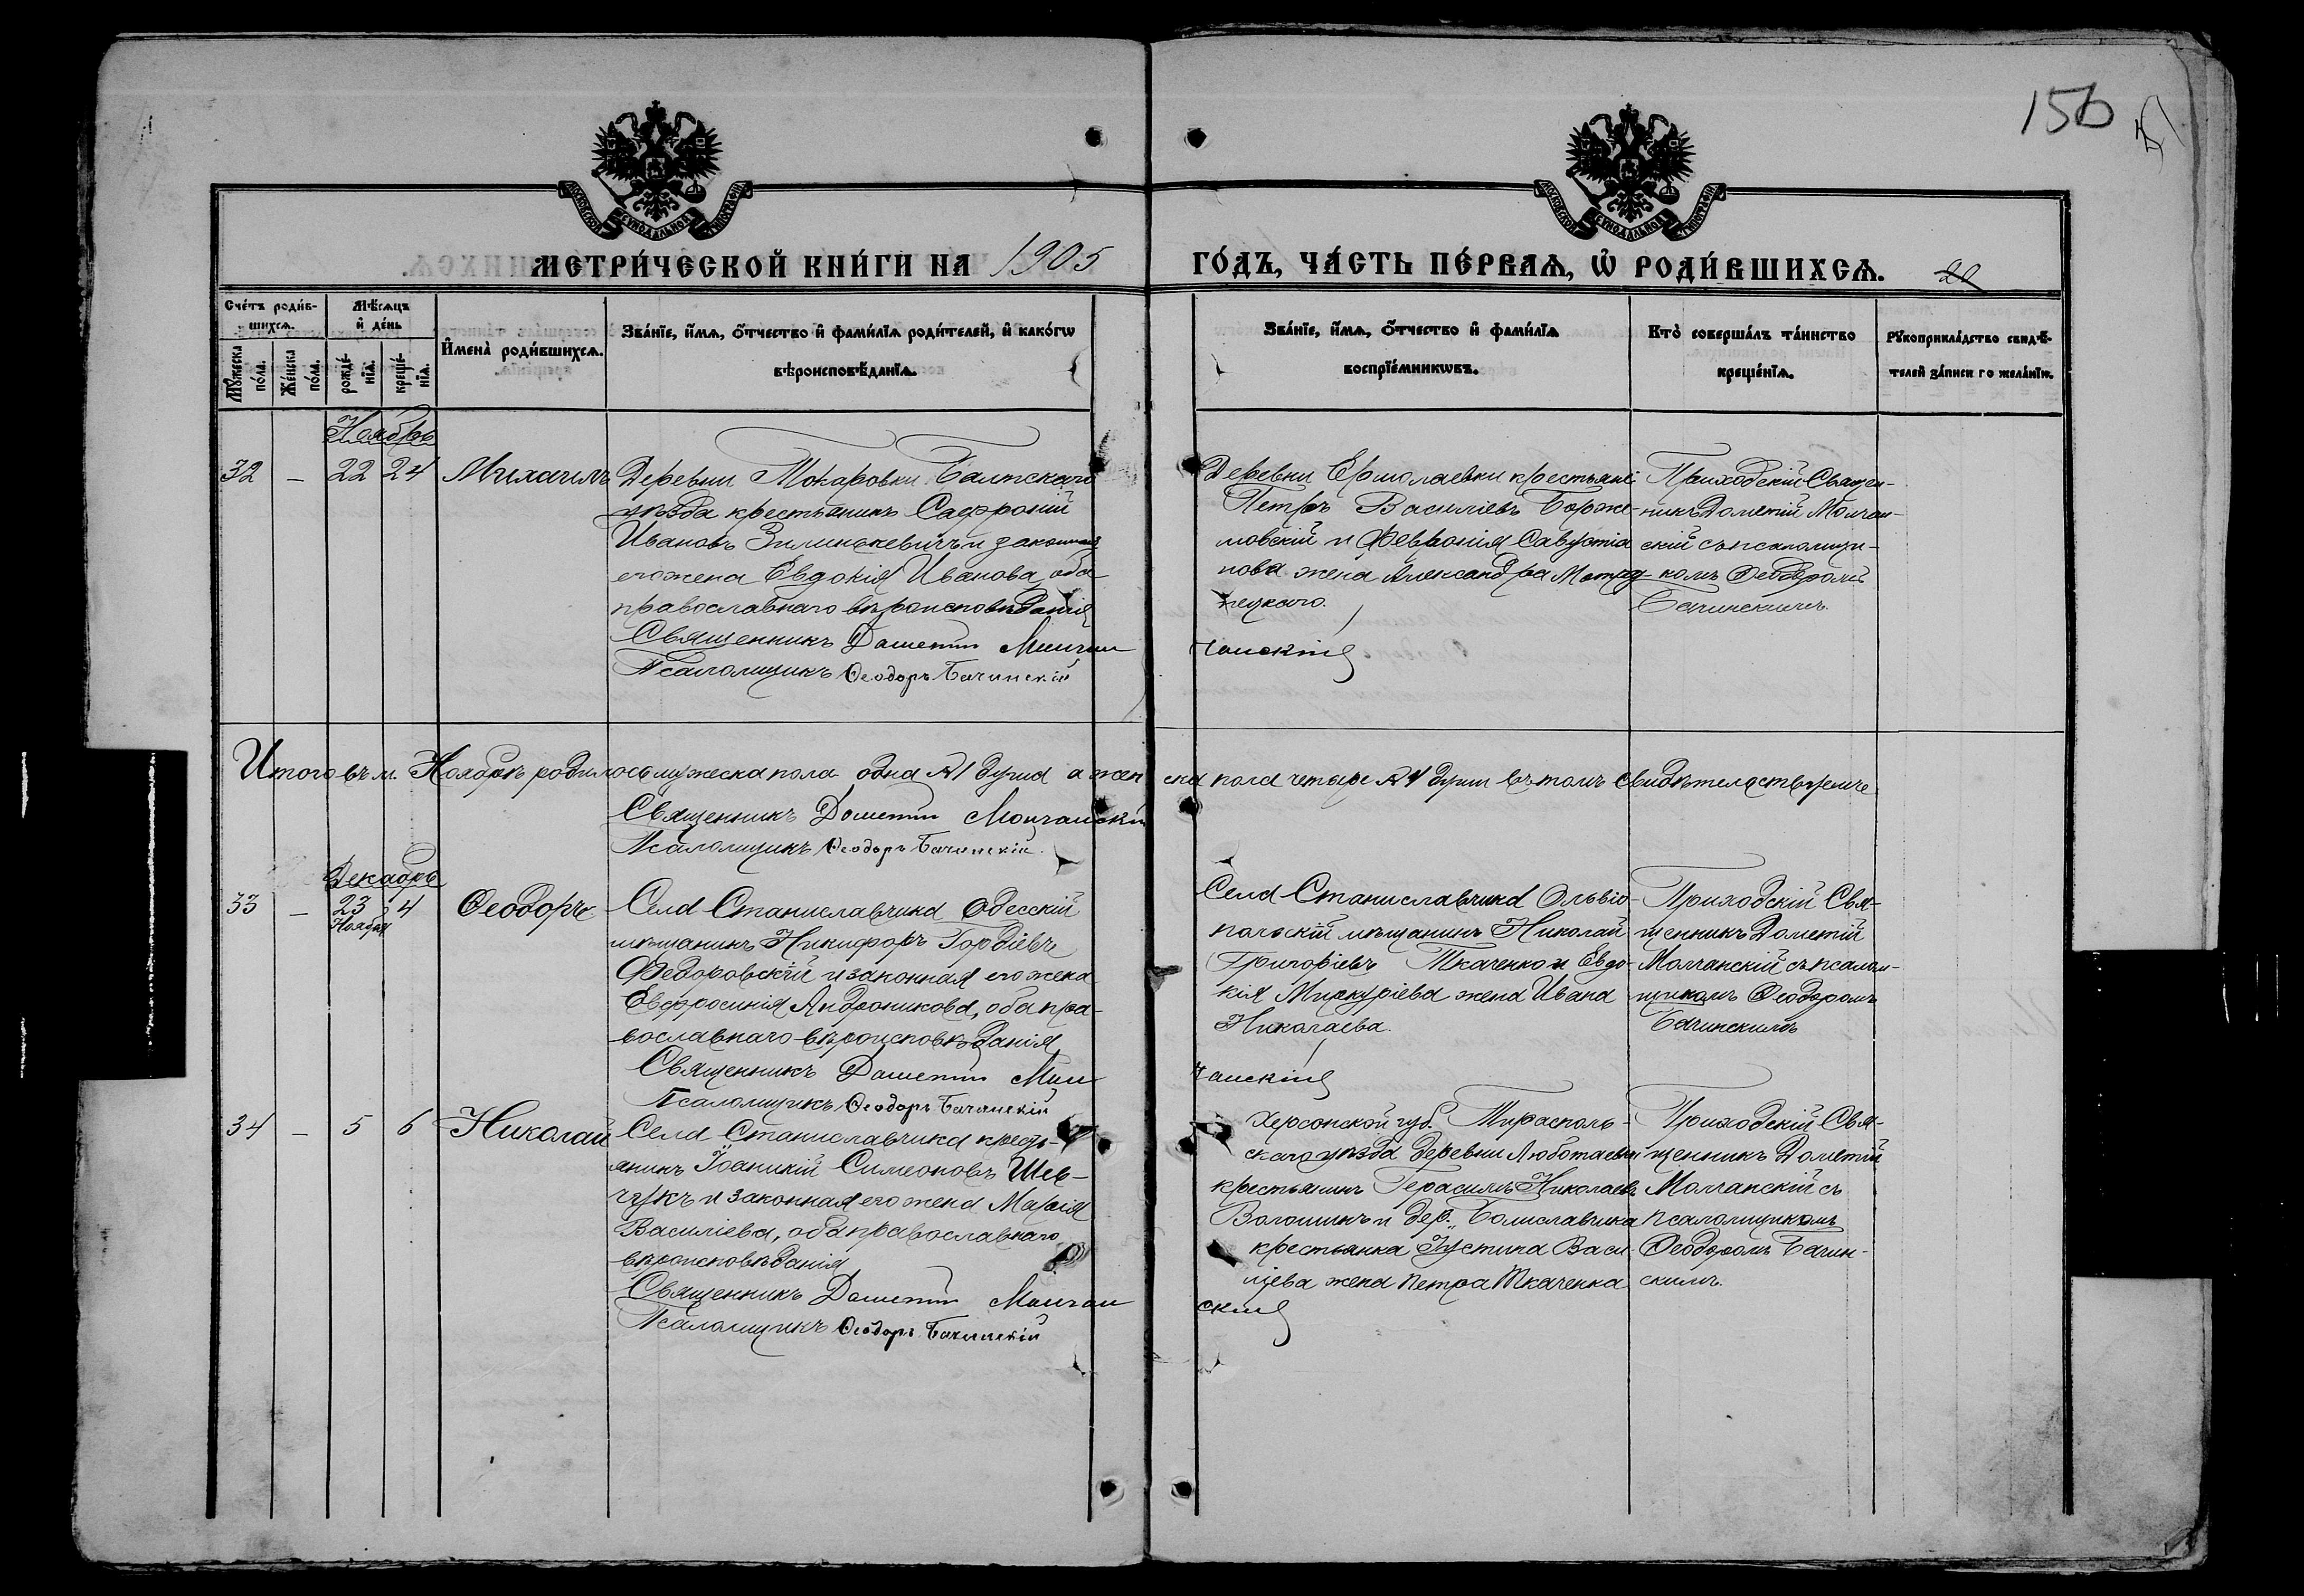 156
МОСКОВСКОЙ СѴНОДАЛЬНОЙ ТИПОГРАФІИ
МОСКОВСКОЙ СѴНОДАЛЬНОЙ ТИПОГРАФІИ
МЕТРИ́ЧЕСКОЙ КНИ́ГИ НА 1905
ГО́ДЪ, ЧА́СТЬ ПЕ́РВАЯ, Ѽ РОДИ́ВШИХСЯ.
Сче́тъ роди́в-
шихся.
Мѣ́сяцъ
и҆ де́нь
Мꙋ́жеска по́ла.
Же́нска по́ла.
рожде́-нїѧ.
креще́-нїѧ.
И҆мена̀ роди́вшихсѧ.
Зва́нїе, и҆́мѧ, ѻ҆́тчество и҆ фами́лїѧ роди́телей, и҆ како́гѡ
вѣроисповѣ́данїѧ.
Зва́нїе, и҆́мѧ, ѻ҆́тчество и҆ фами́лїѧ
воспрїе́мникѡвъ.
Кто̀ соверша́лъ та́инство
креще́нїѧ.
Рꙋкоприкла́дство свидѣ́-
телей за́писи по жела́нїю.
Ноябрь
32 — 22 24 Михаилъ
Деревни Токаровки Балтскаго
уѣзда крестьянинъ Сафроній
Ивановъ Зилинкевичъ и законная
его жена Евдокія Иванова, оба
православнаго вѣроисповѣданія
Священникъ Дометій Молчан
Псаломщикъ Ѳеодоръ Бачинскій
Деревни Ермолаевки крестьяне
Петръ Василіевъ Борже-
мовскій и Февронія
нова жена Александра
нецкаго.
чанскій
Приходскій Священ-
никъ Дометій Молчан-
скій съ псаломщи-
комъ Ѳеодоромъ
Бачинскимъ.
Итого въ м. Ноябрѣ родилось мужеска пола одна № 1 душа а женска пола четыре № 4 души въ томъ свидѣтельствуемъ
Священникъ Дометій Молчанскій
Псаломщикъ Ѳеодоръ Бачинскій.
Декабрь
33 — 23 4 Ѳеодоръ
Ноября
Села Станиславчика Одесскій
мѣщанинъ Никифоръ Гордіевъ
Федоровскій и законная его жена
Евфросинія Андроникова, оба пра-
вославнаго вѣроисповѣданія
Священникъ Дометій Мол
Псаломщикъ Ѳеодоръ Бачинскій
Села Станиславчика Ольвіо-
польскій мѣщанинъ Николай
Григоріевъ Ткаченко и Евдо-
кія Миркуріева жена Ивана
Николаева.
чанскій
Приходскій Свя-
щенникъ Дометій
Молчанскій съ псалом-
щикомъ Ѳеодоромъ
Бачинскимъ
34 — 5 6 Николай
Села Станиславчика кресть-
янинъ Іоаникій Симеоновъ Шев-
чукъ и законная его жена Марія
Василіева, оба православнаго
вѣроисповѣданія
Священникъ Дометій Молчан
Псаломщикъ Ѳеодоръ Бачинскій
Херсонской губ. Тирасполь-
скаго уѣзда деревни
крестьянинъ Герасимъ Николаевъ
Волошинъ и дер. Болиславчика
крестьянка Іустина Васи-
ліева жена Петра Ткаченка
скій
Приходскій Свя-
щенникъ Дометій
Молчанскій съ
псаломщикомъ
Ѳеодоромъ Бачин-
скимъ.